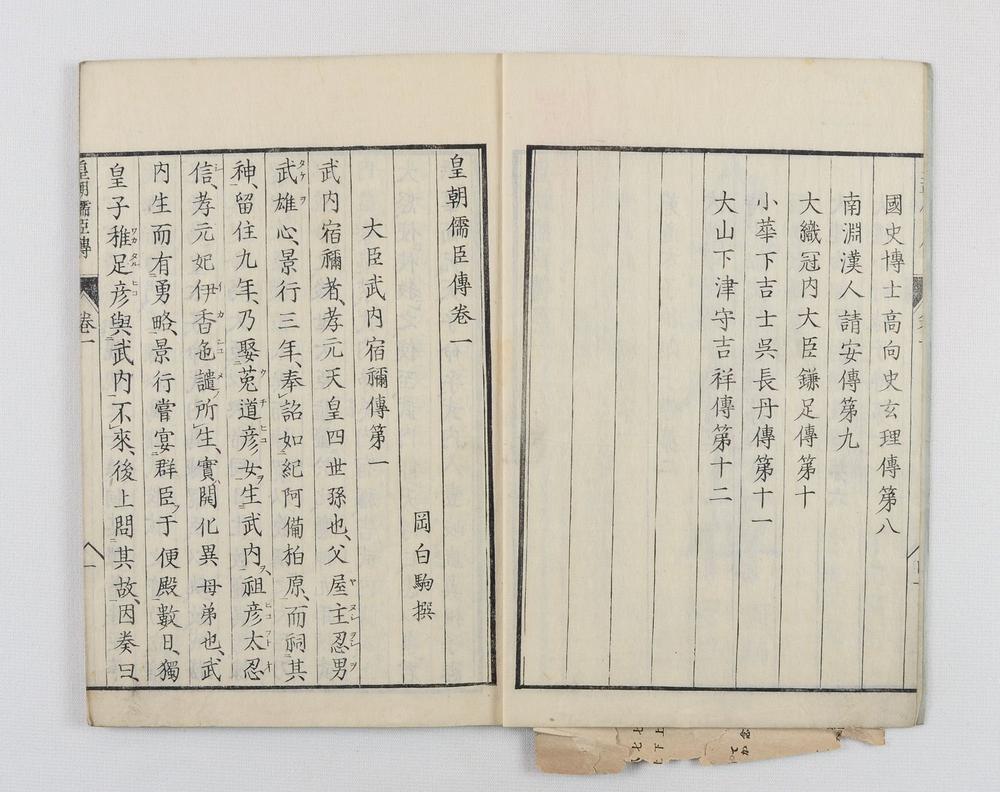 國史博士高向史玄理傳第八
南淵漢人請安傳第九
大織冠内大臣鎌足傳第十
小華下吉士吳長丹傳第十一
大山下津守吉祥傳第十二
皇朝儒臣傳卷一
岡白駒撰
大臣武内宿禰傳第一
武内宿禰者、孝元天皇四世孫也、父屋主忍男
武雄心、景行三年、奉詔如紀阿備柏原、而祠其
神、留住九年、乃娶菟道彦女生武内、祖彦太忍
信、孝元妃伊香色謎所生、實開化異母弟也、武
内生而有勇略、景行嘗宴群臣于便殿數日、獨
皇子稚足彦與武内不來、後上問其故、因奏曰、
皇朝儒臣傳
卷一
一